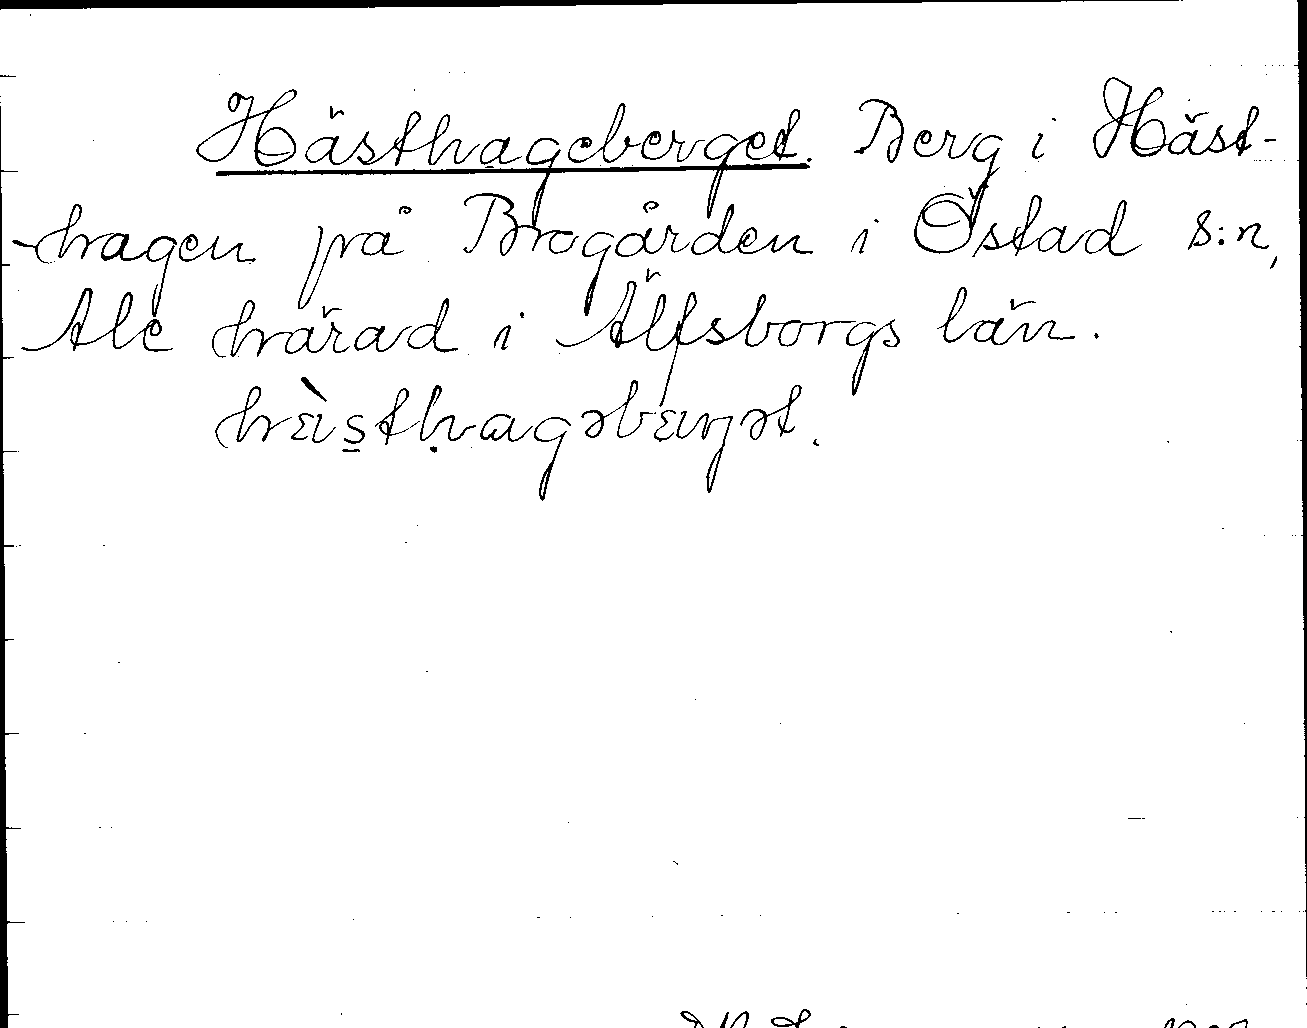 Hästhageberget. Berg i Häst-
hagen på Brogården i Östad s:n,
Ale härad i Älfsborgs län.
hɛ̀sthagəbɛrjət.